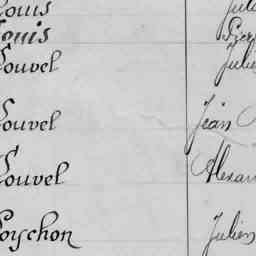 Louis Juli
Louis Pier
Louvel Julie
Louvel Jean
Louvel Alexan
Poychon Julien